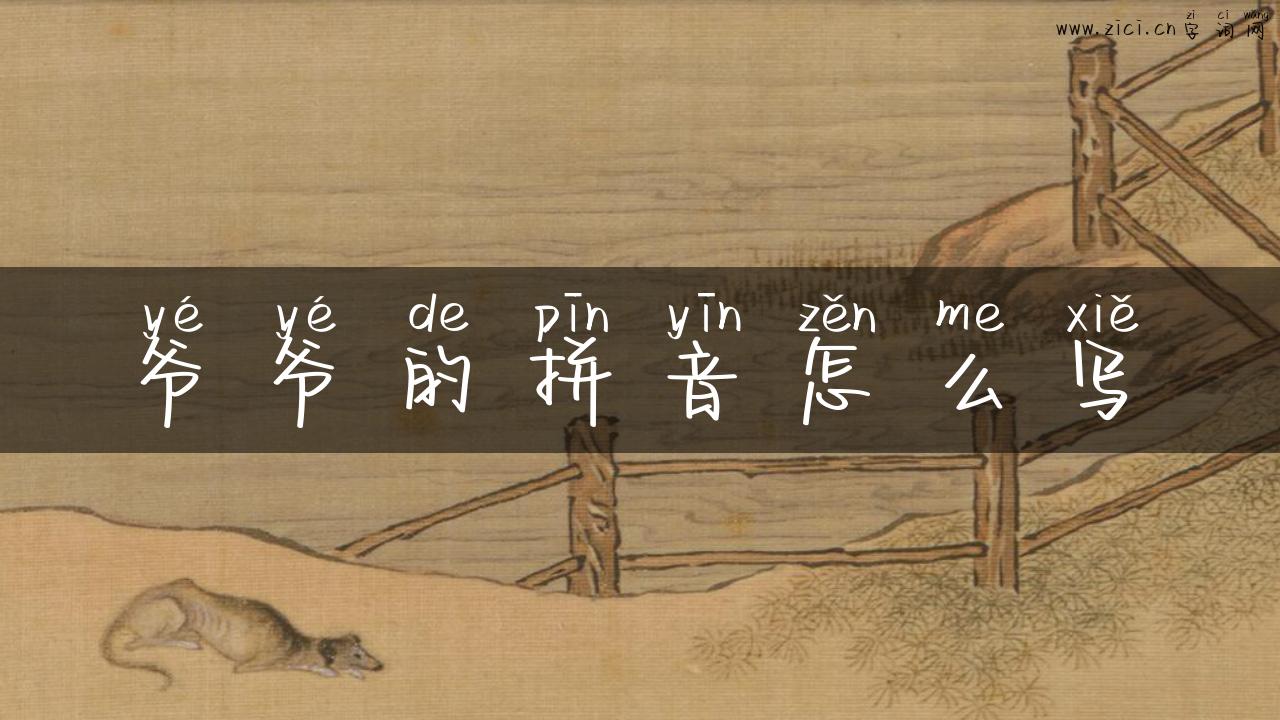 zi ci wang
www.zici.cn 字词网
yé yé de pīn yīn zěn me xiě
爷爷的拼音怎么写